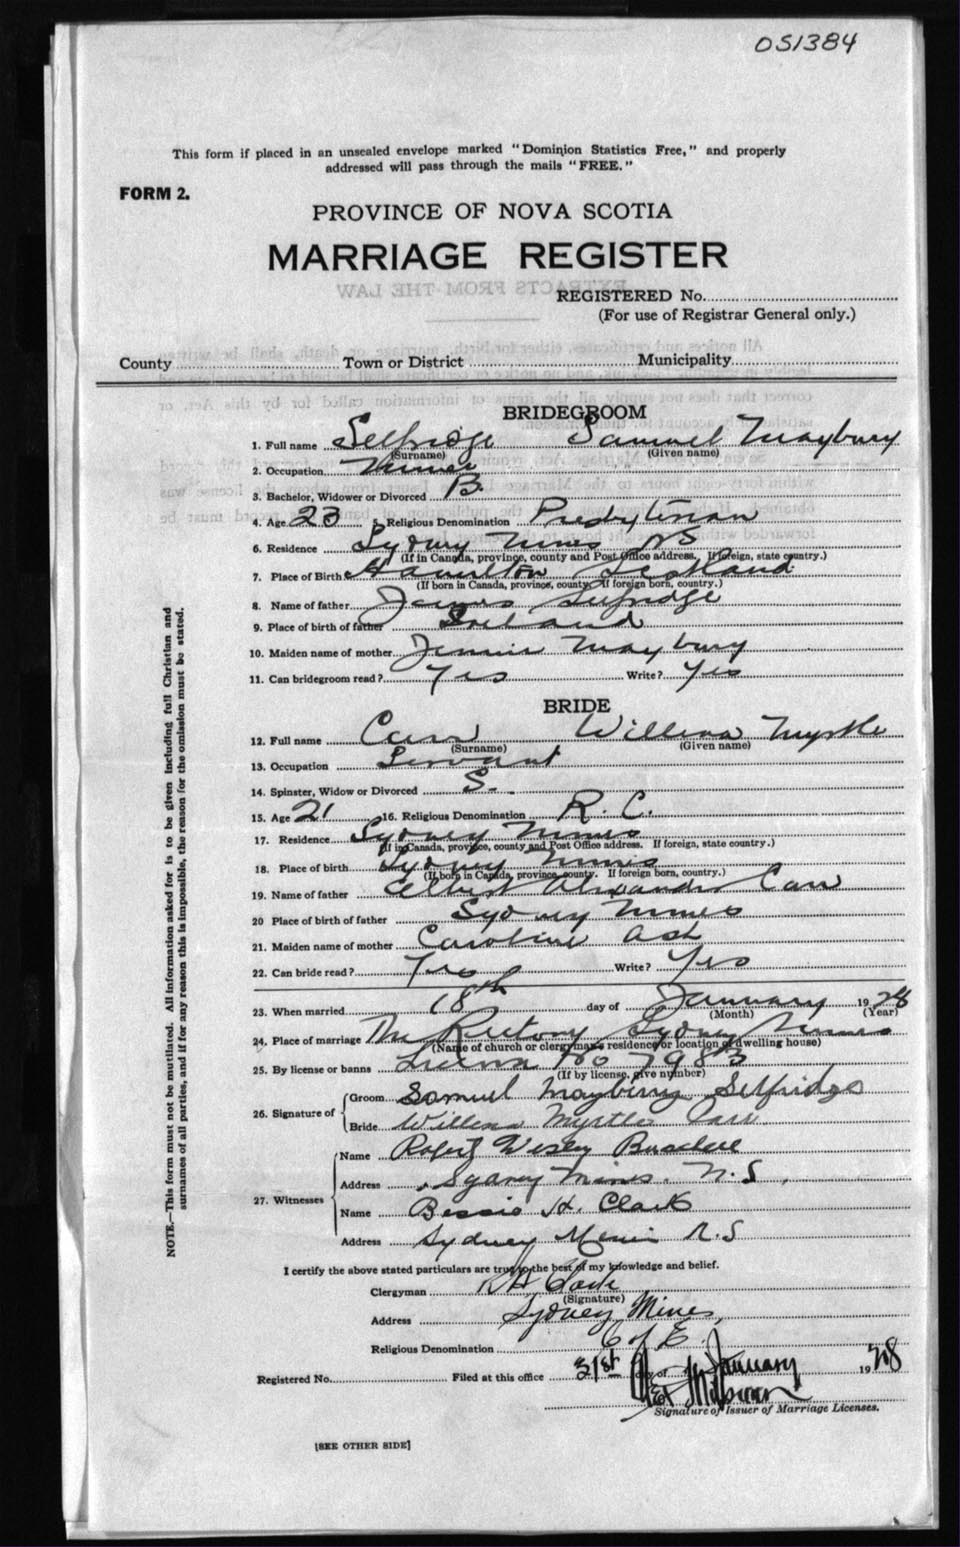 051384
This form if placed in an unsealed envelope marked "Dominion Statistics Free," and properly
addressed will pass through the mails "FREE."
FORM 2.
PROVINCE OF NOVA SCOTIA
MARRIAGE REGISTER
EXTRACTS FROM THE LAW
REGISTERED No.
(For use of Registrar General only.)
County Town or District Municipality
BRIDEGROOM
1. Full name Selfridge Samuel Maybury
(Surname) (Given name)
2. Occupation Miner
3. Bachelor, Widower or Divorced B.
4. Age 23 5. Religious Denomination Presbyterian
6. Residence Sydney Mines NS
(If in Canada, province, county and Post Office address. If foreign, state country.)
7. Place of Birth Hamilton Scotland
(If born in Canada, province, county. If foreign born, country.)
8. Name of father James Selfridge
9. Place of birth of father Ireland
10. Maiden name of mother Jennie Maybury
11. Can bridegroom read? Yes Write? Yes
BRIDE
12. Full name Carr Willena Myrtle
(Surname) (Given name)
13. Occupation Servant
14. Spinster, Widow or Divorced S.
15. Age 21 16. Religious Denomination R. C.
17. Residence Sydney Mines
(If in Canada, province, county and Post Office address. If foreign, state country.)
18. Place of birth Sydney Mines
(If born in Canada, province, county. If foreign born, country.)
19. Name of father Albert Alexander Carr
20 Place of birth of father Sydney Mines
21. Maiden name of mother Caroline Ash
22. Can bride read? Yes Write? Yes
23. When married 18th day of January 1928
(Month) (Year)
24. Place of marriage The Rectory Sydney Mines
(Name of church or clergyman's residence or location of dwelling house)
25. By license or banns License No 7983
(If by license, give number)
26. Signature of Groom Samuel Mayberry Selfridge
Bride Willena Myrtle Carr
27. Witnesses Name Robert Wesley
Address Sydney Mines. N.S.
Name Bessie H. Clark
Address Sydney Mines N.S
I certify the above stated particulars are true to the best of my knowledge and belief.
Clergyman
(Signature)
Address Sydney Mines,
Religious Denomination C of E.
Registered No. Filed at this office 31st day of January 1928
Signature of Issuer of Marriage Licenses.
[SEE OTHER SIDE]
NOTE.—This form must not be mutilated. All information asked for is to be given including full Christian and
surnames of all parties, and if for any reason this is impossible, the reason for the omission must be stated.